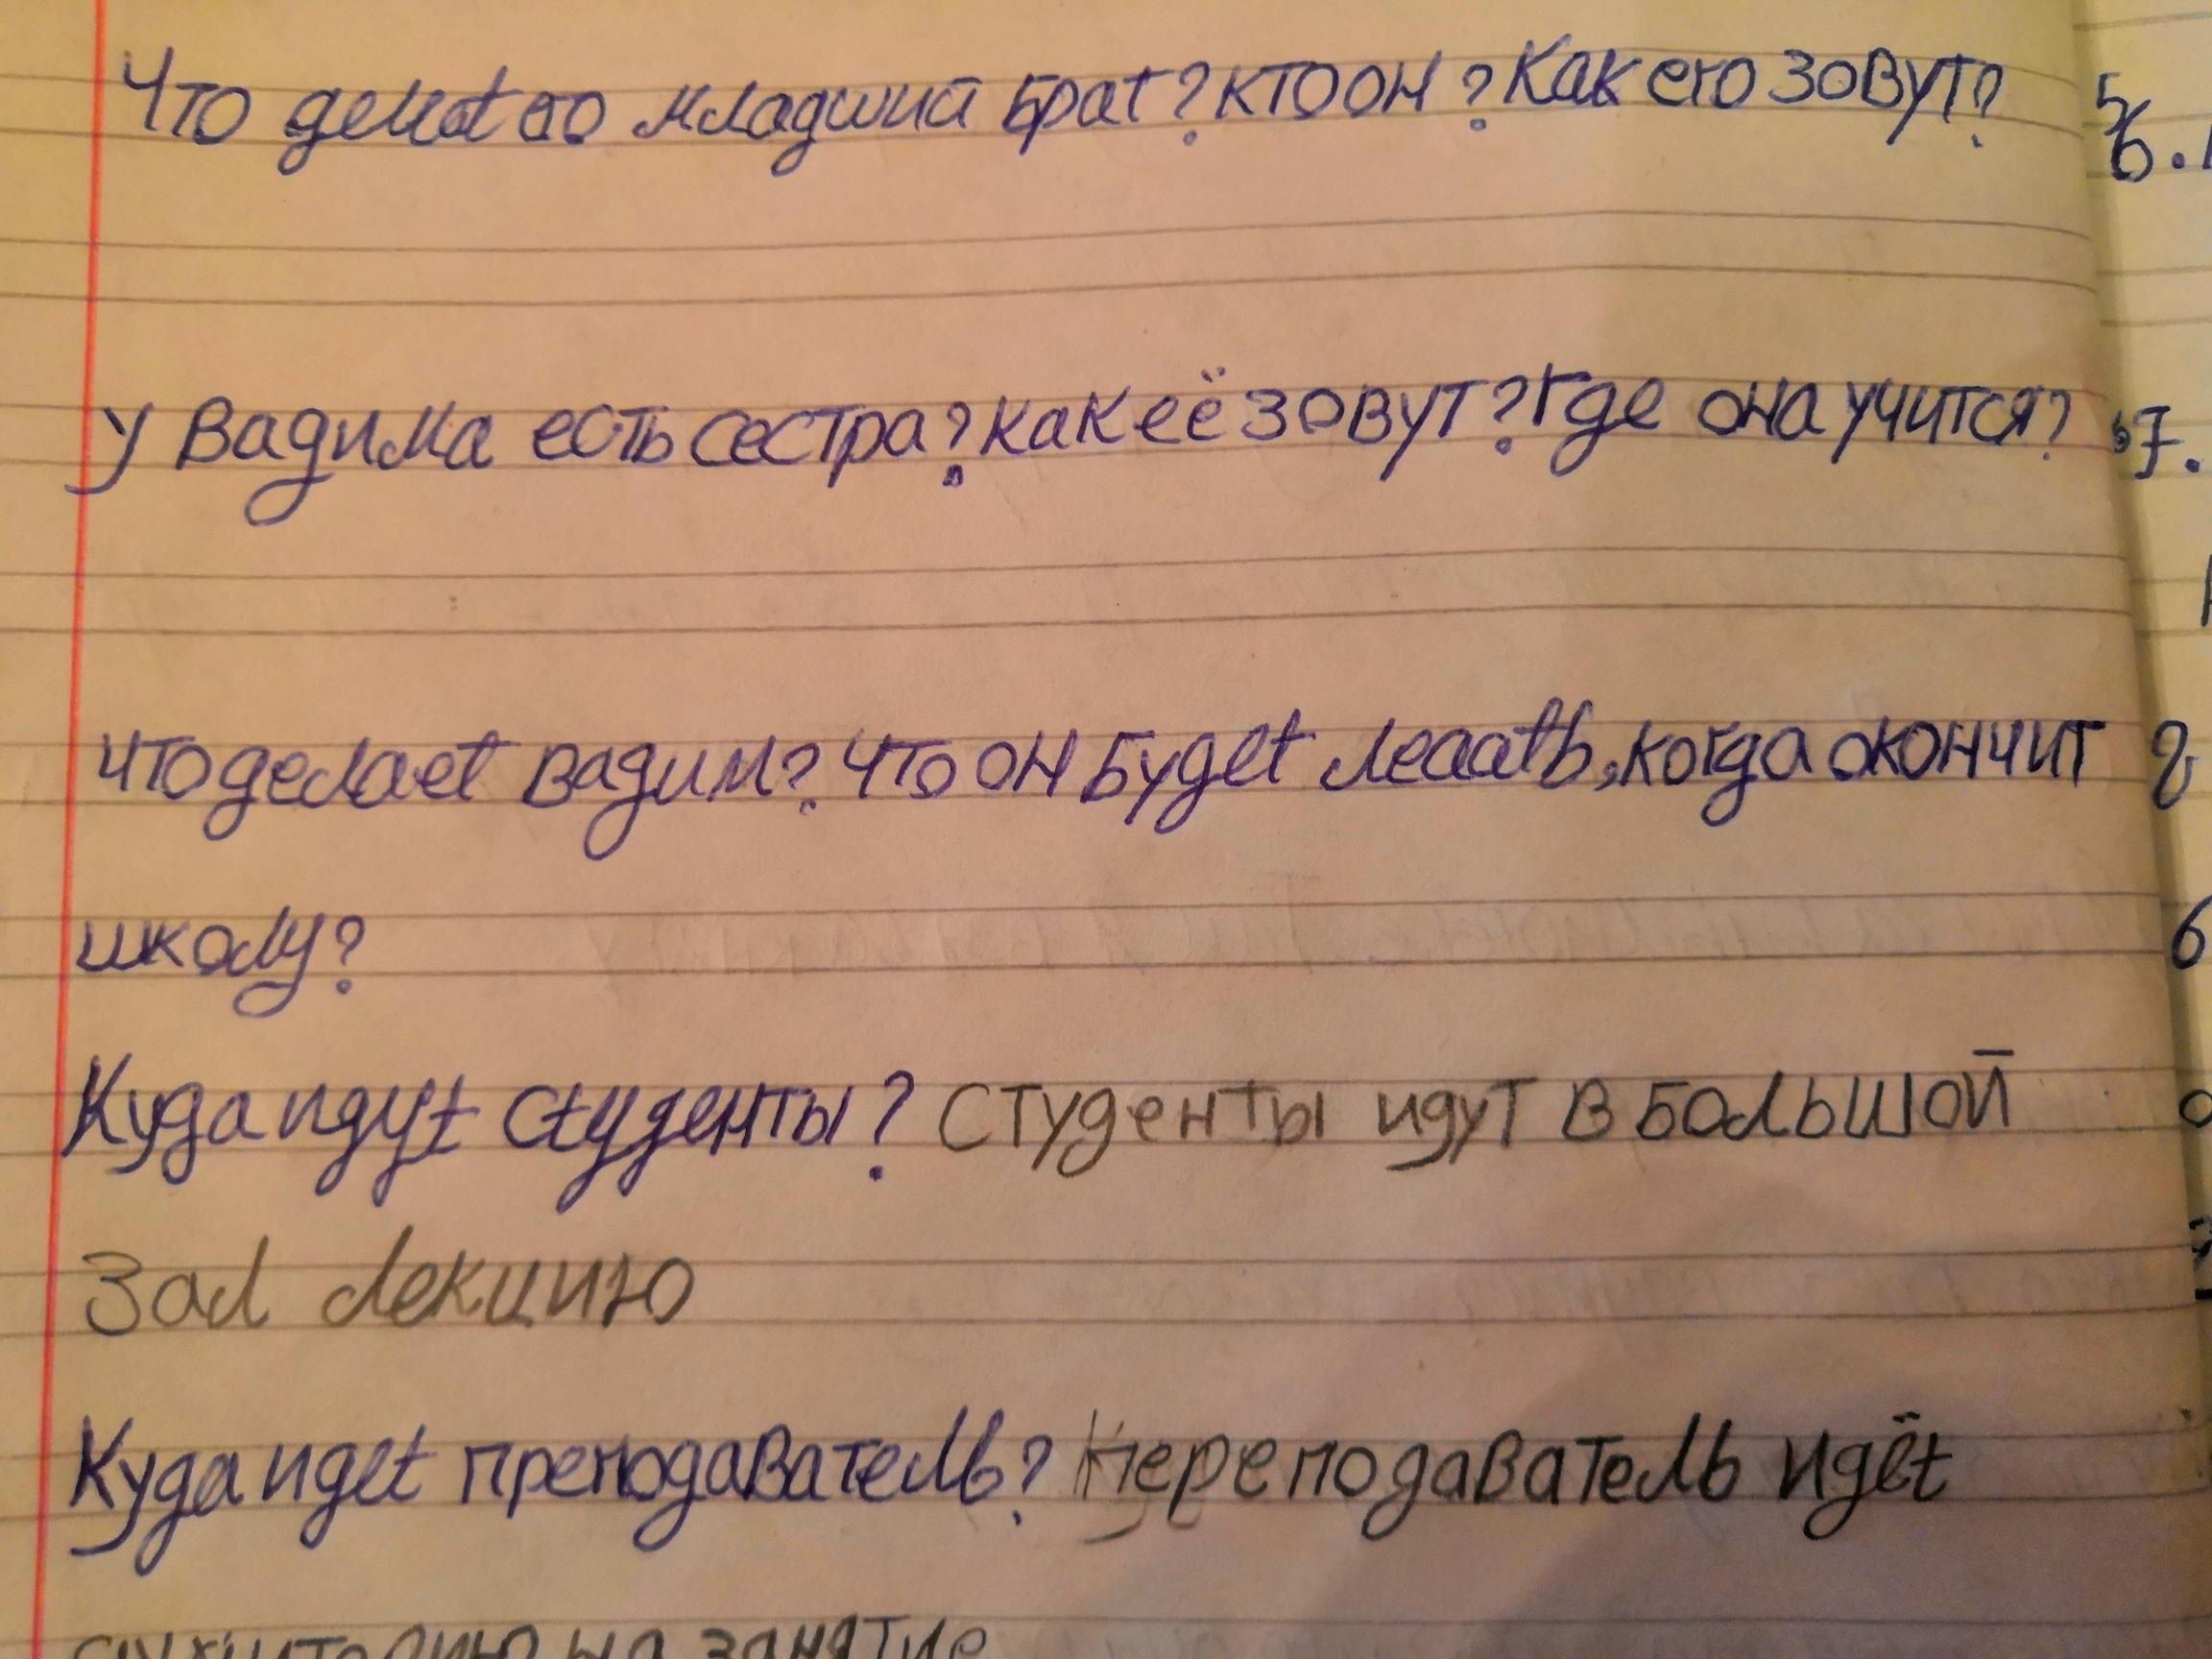 Что делат его младший брат? кто он? Как его зовут?
у Вадима есть сестра? как её зовут? где она учится?
что делает вадим? что он будет леаать, когда окончит
школу?
Куда идут студенты? Студенты идут в большой
зал лекцию
Куда идет преподаватель? Переподаватель идёт
на занятие